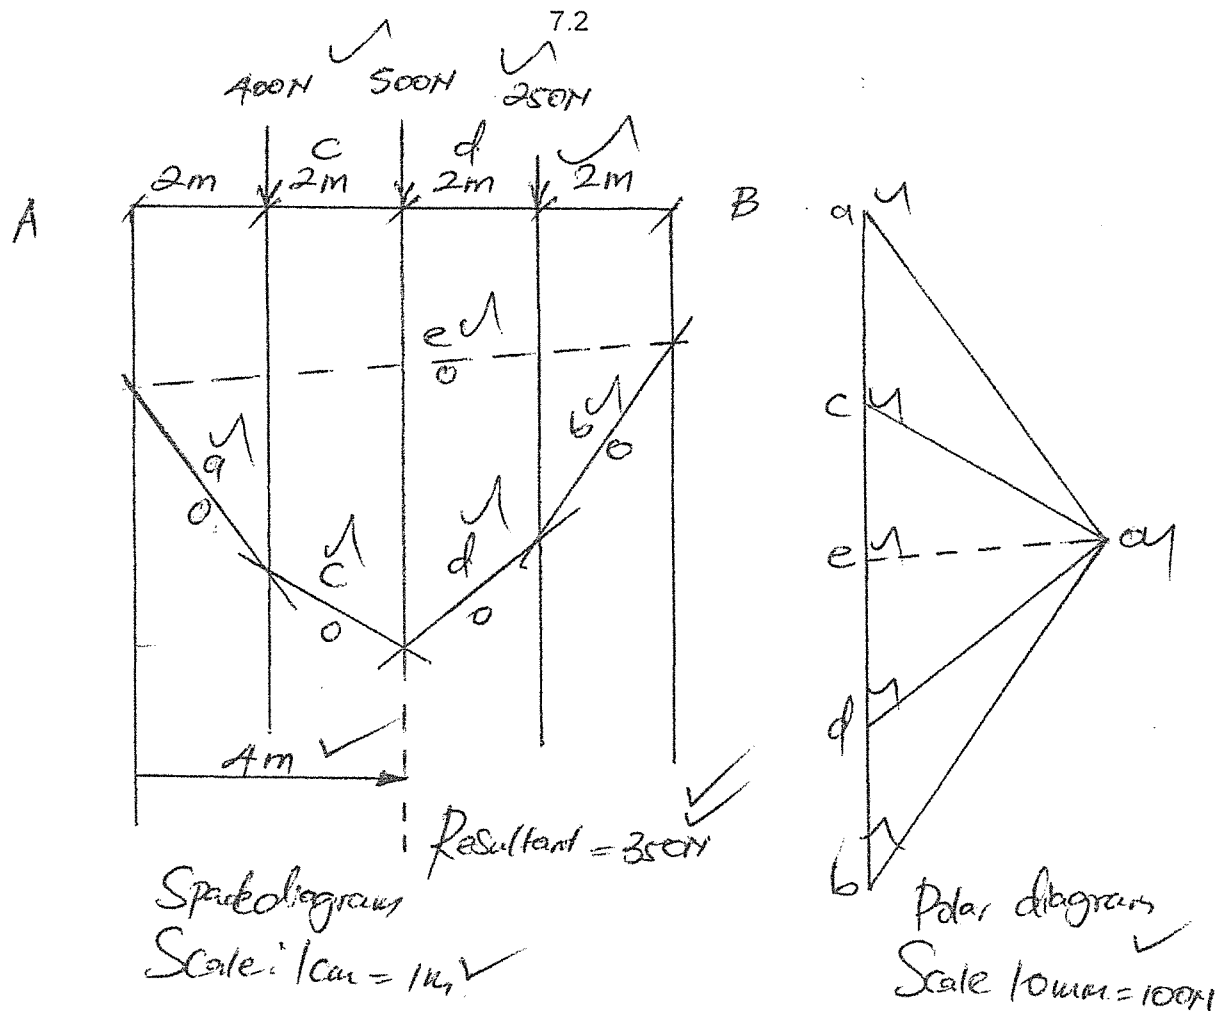 7.2
400N 500N 250N
c d
2m 2m 2m 2m
A B
e
o
a
o
b
o
c
o
d
o
4m
Resultant = 350N
Space diagram
Scale: 1cm = 1m
a
c
e
o
d
b
Polar diagram
Scale 10mm = 100N